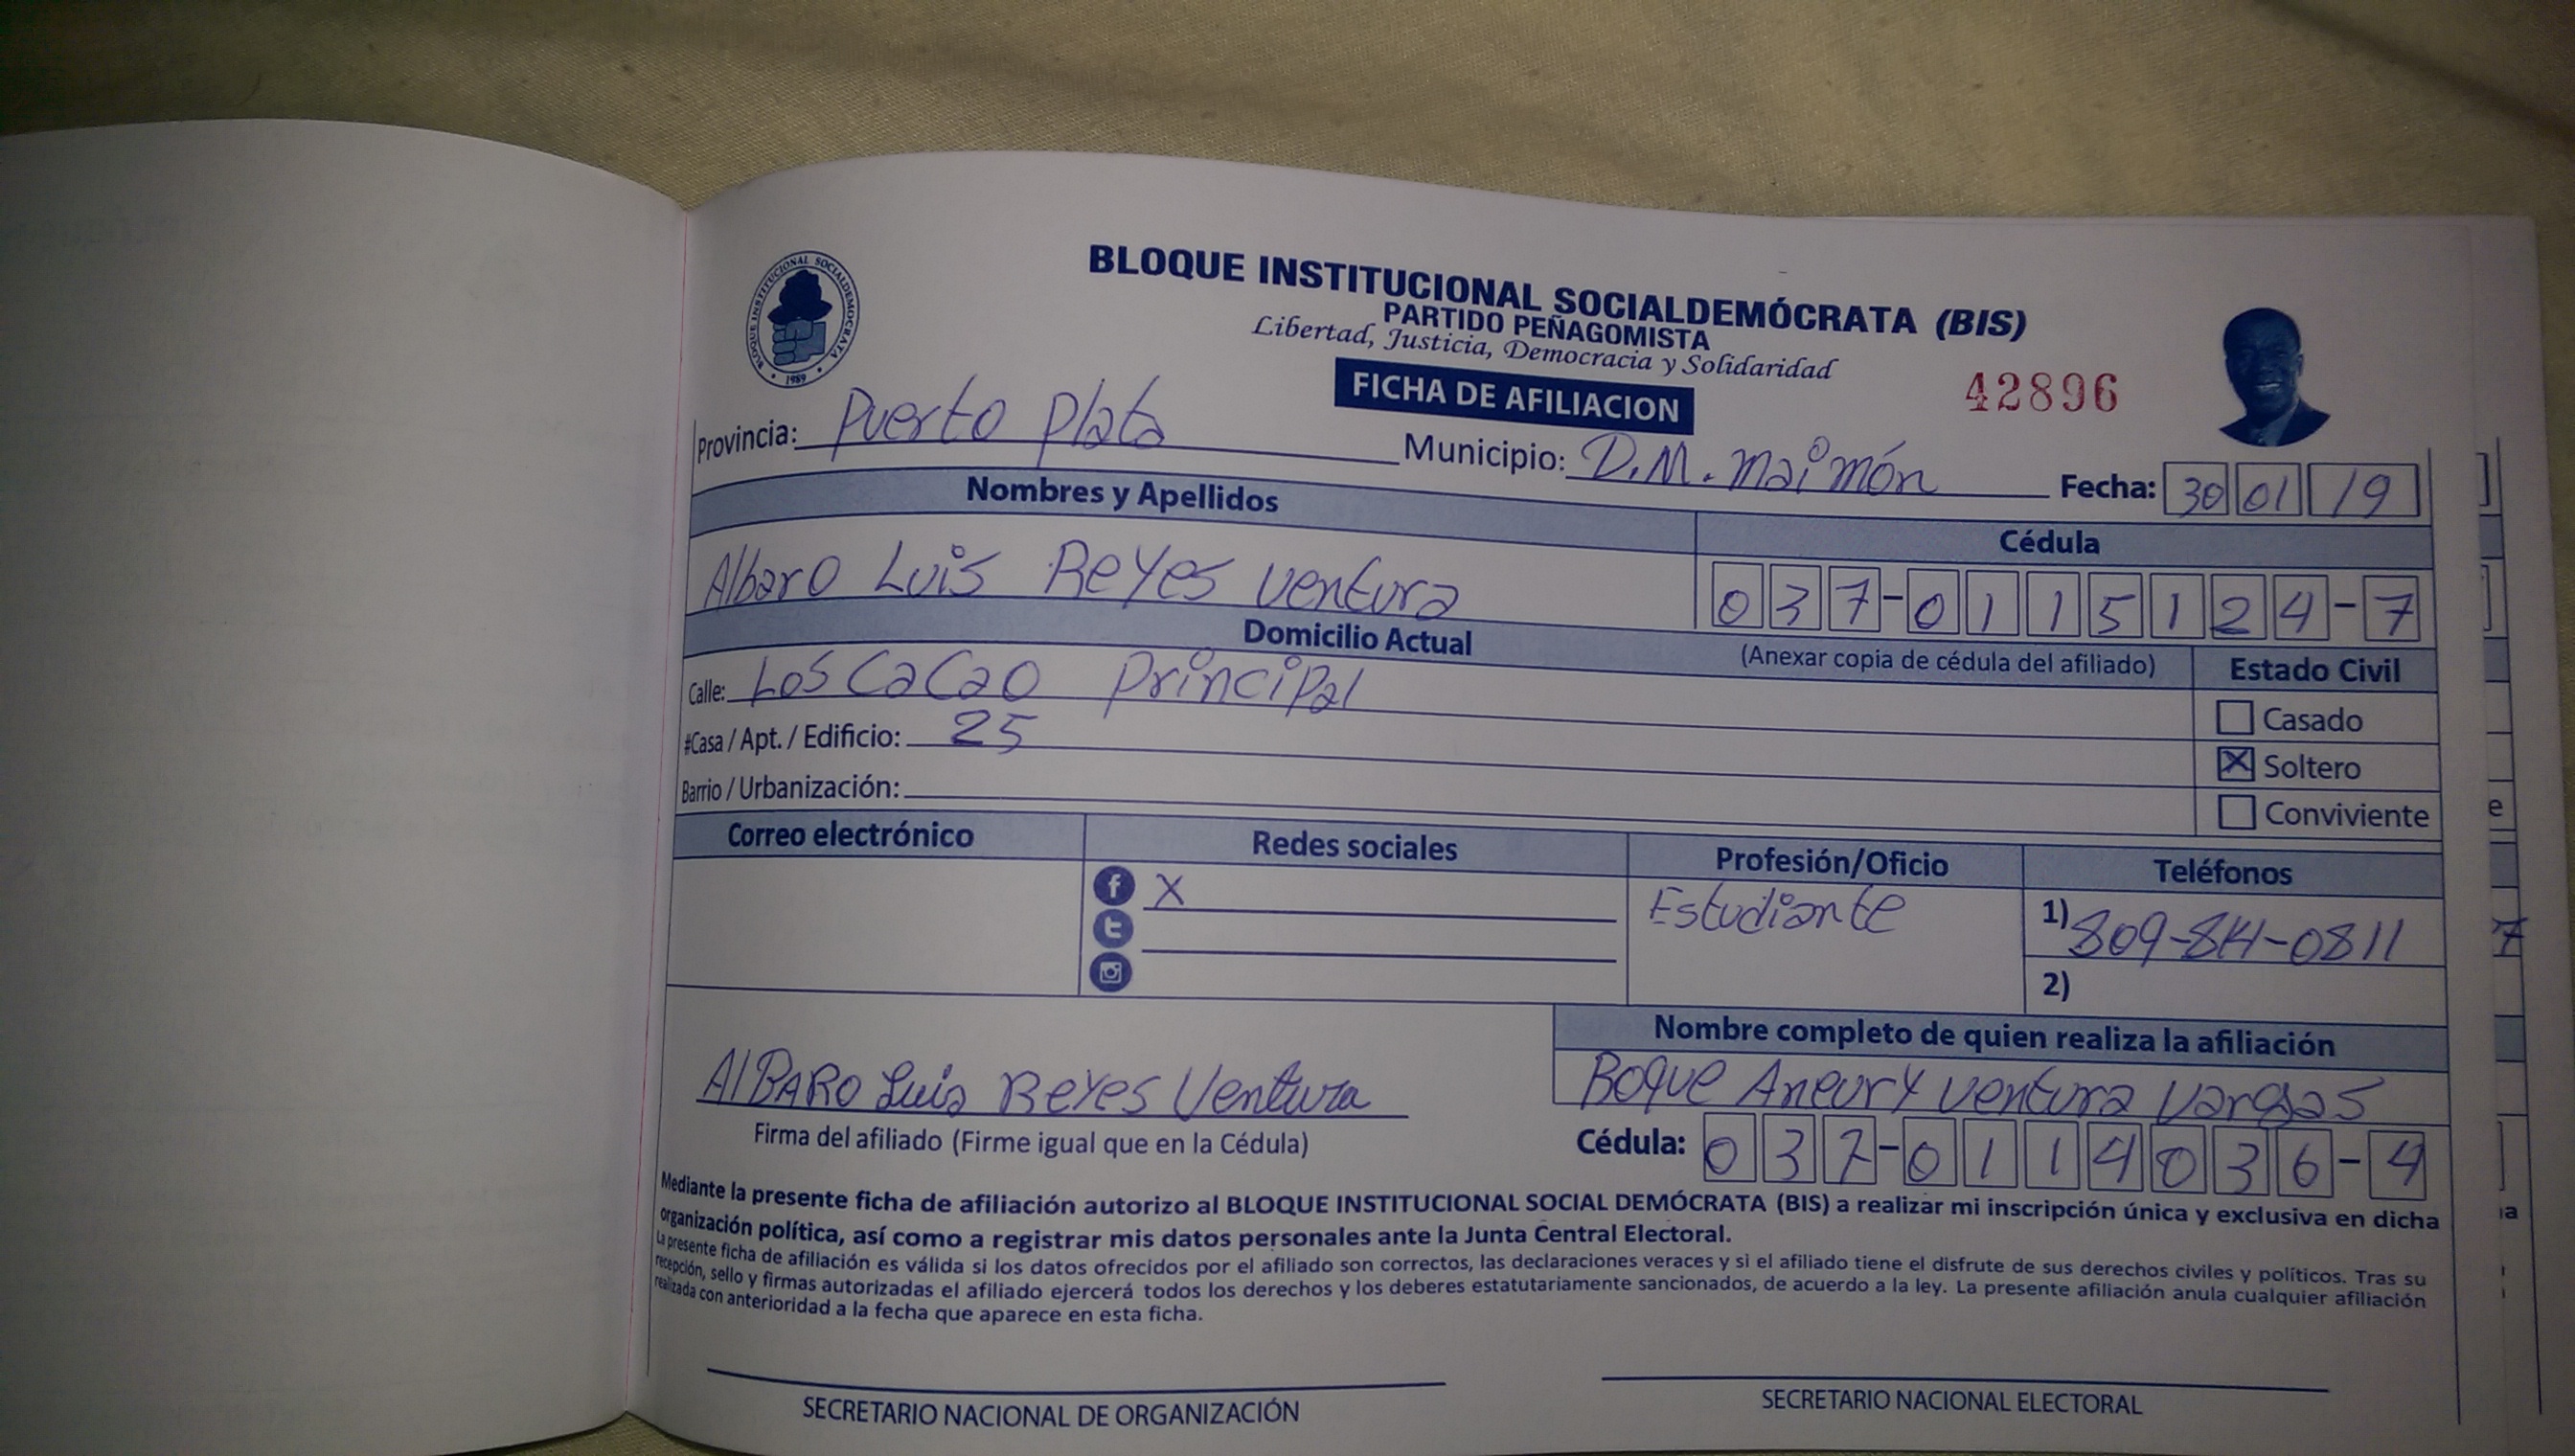 BLOQUE INSTITUCIONAL SOCIALDEMÓCRATA (BIS)
PARTIDO PEÑAGOMISTA
Libertad, Justicia, Democracia y Solidaridad
BLOQUE INSTITUCIONAL SOCIALDEMOCRATA
1989
FICHA DE AFILIACION
42896
Provincia: Puerto Plata Municipio: D.M. Maimón Fecha: 30 01 19
Nombres y Apellidos
Cédula
Albaro Luis Reyes Ventura
037-0115124-7
Domicilio Actual
(Anexar copia de cédula del afiliado)
Estado Civil
Calle: Los CaCao Principal
#Casa / Apt. / Edificio: 25
Barrio / Urbanización:
Casado
X Soltero
Conviviente
Correo electrónico Redes sociales Profesión/Oficio Teléfonos
f X
Estudiante
1) 809-841-0811
2)
Nombre completo de quien realiza la afiliación
Roque Aneury Ventura Vargas
AlBARO Luis Reyes Ventura
Firma del afiliado (Firme igual que en la Cédula)
Cédula: 037-0114036-4
Mediante la presente ficha de afiliación autorizo al BLOQUE INSTITUCIONAL SOCIAL DEMÓCRATA (BIS) a realizar mi inscripción única y exclusiva en dicha
organización política, así como a registrar mis datos personales ante la Junta Central Electoral.
La presente ficha de afiliación es válida si los datos ofrecidos por el afiliado son correctos, las declaraciones veraces y si el afiliado tiene el disfrute de sus derechos civiles y políticos. Tras su
recepción, sello y firmas autorizadas el afiliado ejercerá todos los derechos y los deberes estatutariamente sancionados, de acuerdo a la ley. La presente afiliación anula cualquier afiliación
realizada con anterioridad a la fecha que aparece en esta ficha.
SECRETARIO NACIONAL DE ORGANIZACIÓN
SECRETARIO NACIONAL ELECTORAL